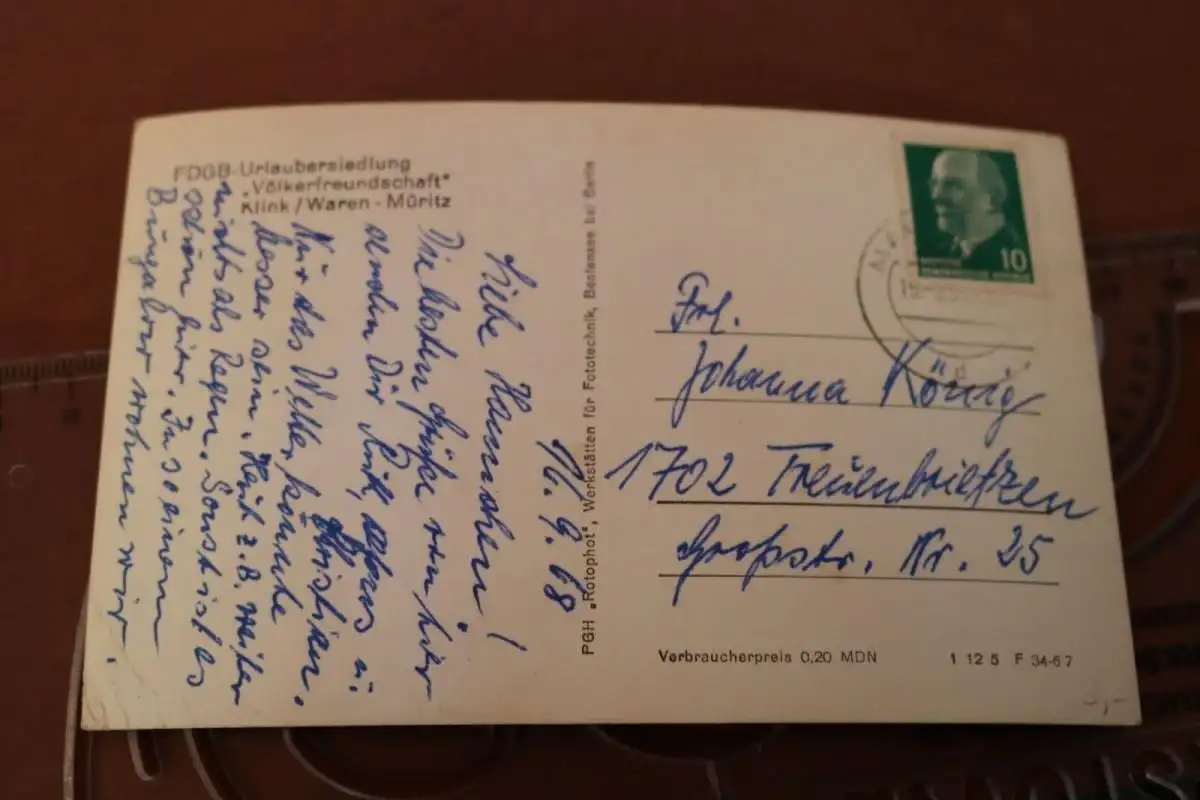 FDGB-Urlaubersiedlung
„Völkerfreundschaft"
Klink/Waren - Müritz
16. 9. 68
Liebe Hannchen!
Die besten Grüße von hier
senden Dir Ruth, u.
Christian.
Nur das Wetter könnte
besser sein. Heut z.B. weiter
nichts als Regen. Sonst ist es
schön hier. In so einem
Bungalow wohnen wir.
PGH „Rotophot", Werkstätten für Fototechnik, Bestensee bei Berlin
10
Frl.
Johanna König
1702 Treuenbrietzen
Großstr. Nr. 25
Verbraucherpreis 0,20 MDN
1 12 5 F 34-67